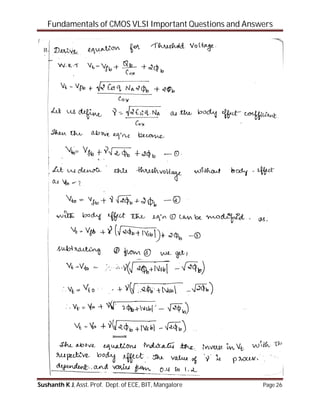 Fundamentals of CMOS VLSI Important Questions and Answers
11. Derive equation for Threshold Voltage.
W.K.T Vt = Vfb + Qb/Cox + 2ϕb
Vt = Vfb + √(2 εsi q NA 2ϕb)/Cox + 2ϕb
Let us define γ = √(2 εsi q NA)/Cox as the body effect coefficient
Then the above eq'ns become
Vt = Vfb + γ√2ϕb + 2ϕb — ①
Let us denote this threshvoltage without body-effect
as Vto = ?
Vto = Vfb + γ√2ϕb + 2ϕb — ②
with body effect the eq'n ① can be modified as.
Vt = Vfb + γ(√(2ϕb + |Vsb|)) + 2ϕb — ③
subtracting ② from ③ we get;
Vt - Vto = γ(√(2ϕb + |Vsb|) - √2ϕb)
∴ Vt = Vto + γ(√(2ϕb + |Vsb|) - √2ϕb)
∴ Vt = Vto + γ(√(2ϕb + |Vsb|) - √2ϕb)
Vt = Vto + γ(√(2ϕb + |Vsb|) - √2ϕb)
The above equations Indicates the in Vt with
repective body effect. The value of 'γ' is process
dependent. and varies from 0.4 to 1.2
Sushanth K J, Asst. Prof. Dept. of ECE, BIT, Mangalore Page 26